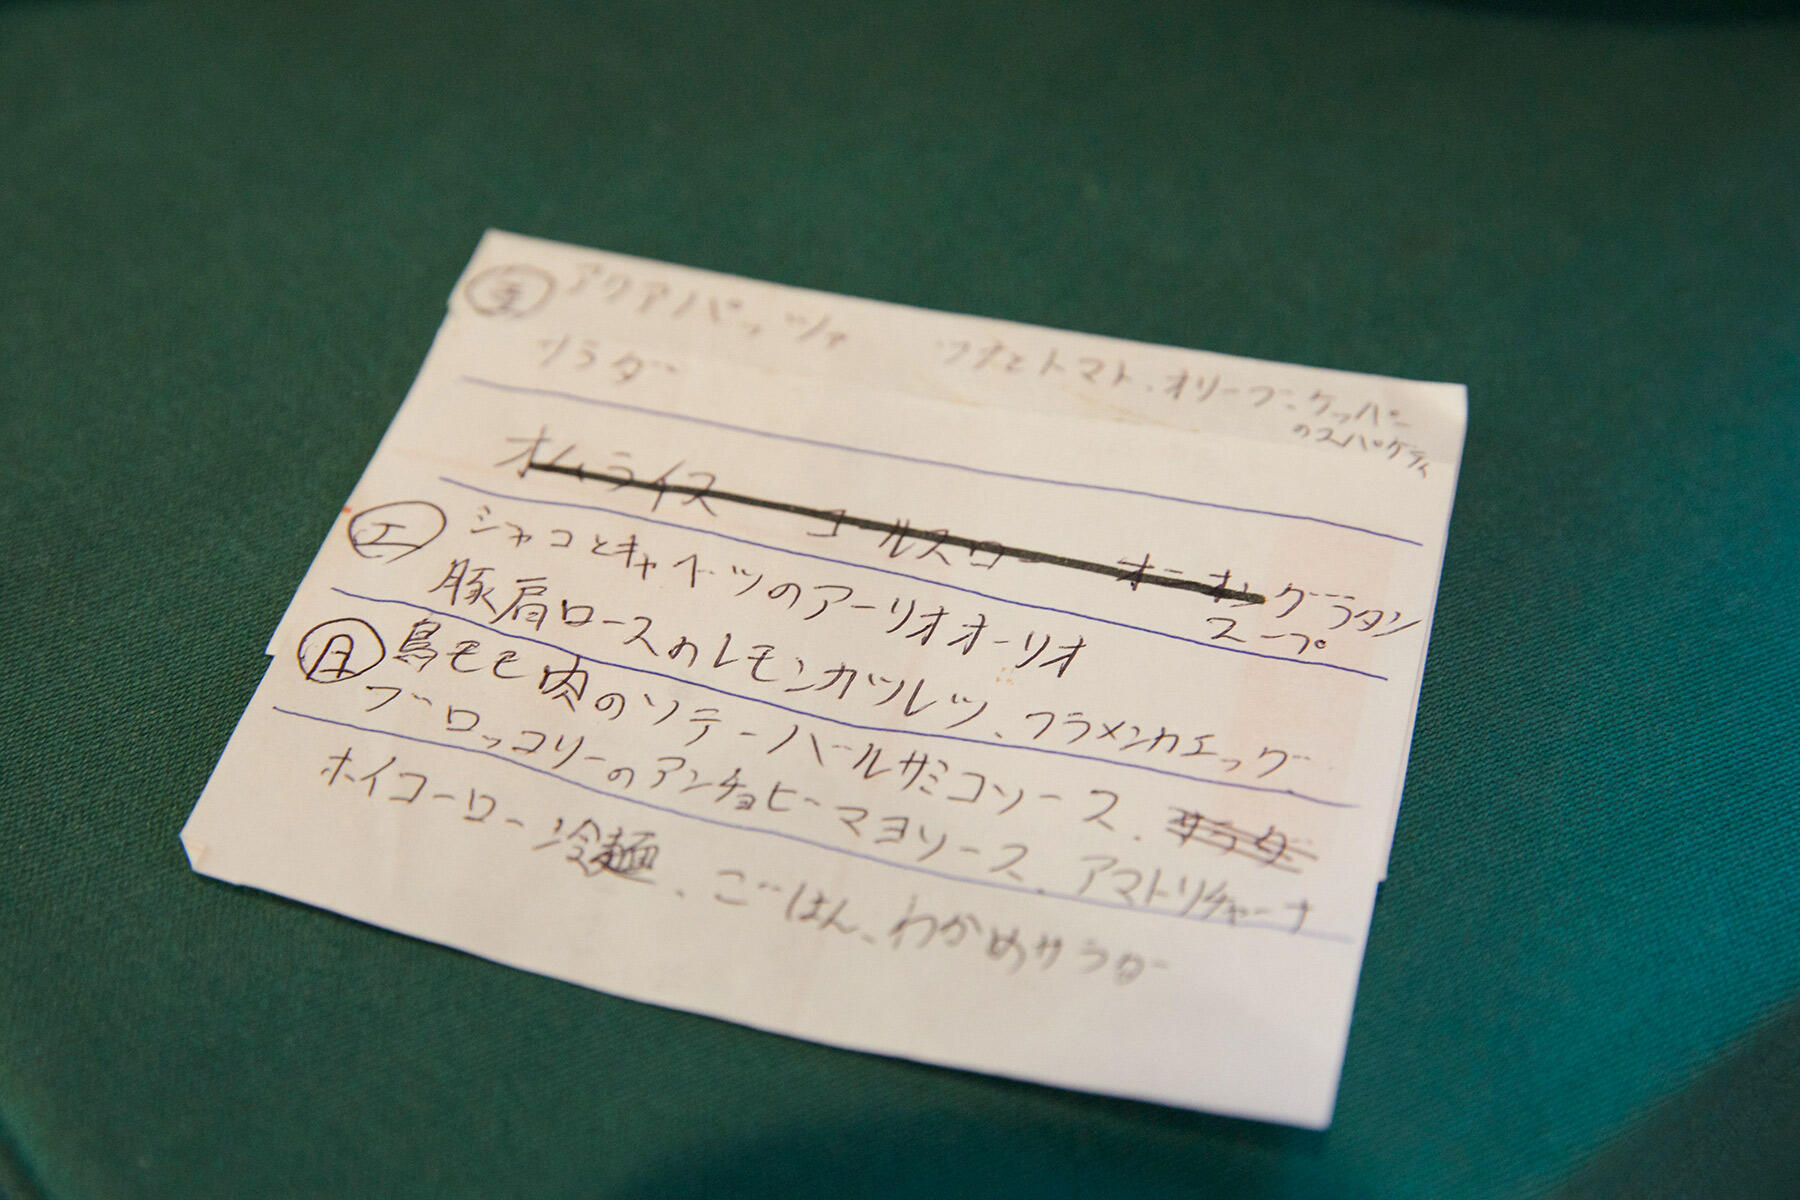 金 アクアパッツァ ツナとトマト、オリーブ、ケッパー
のスパゲティ
サラダ
オムライス コールスロー オニオングラタン
スープ
土 シャコとキャベツのアーリオオーリオ
豚肩ロースのレモンカツレツ、フラメンカエッグ
日 鳥モモ肉のソテーバルサミコソース、サラダ
ブロッコリーのアンチョビーマヨソース、アマトリチャーナ
ホイコーロー冷麺、ごはん、わかめサラダ